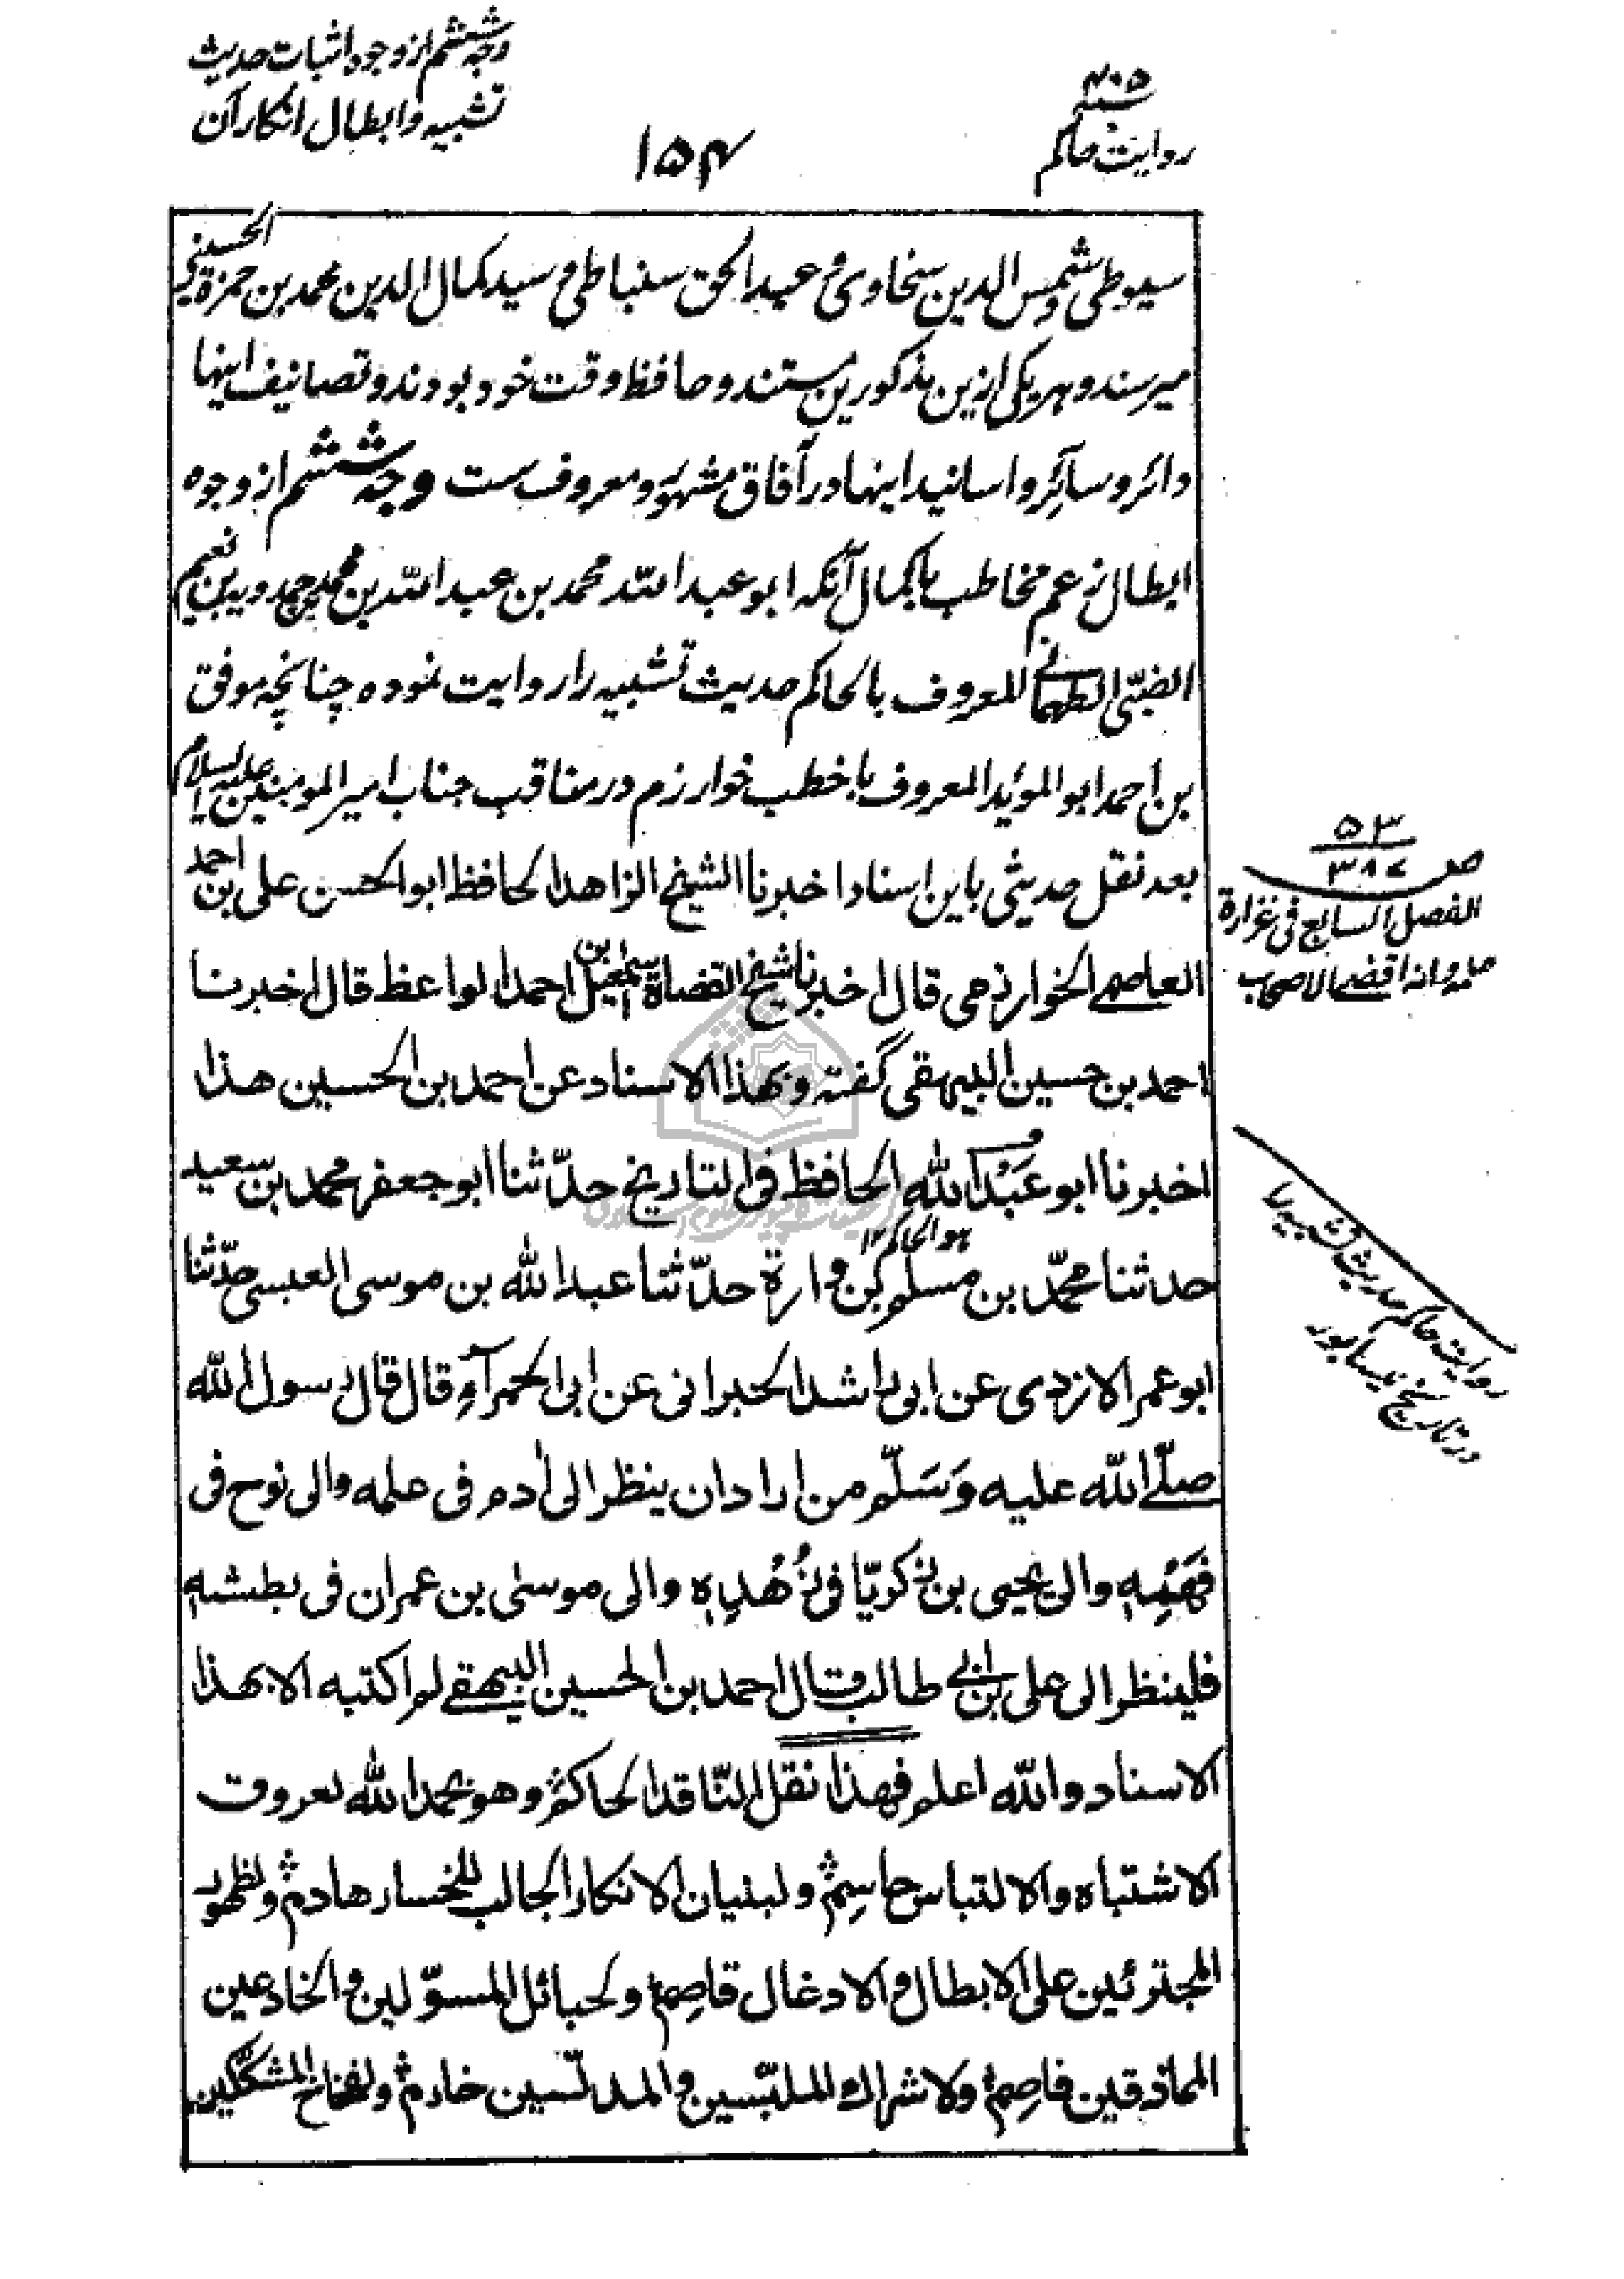 وجه ششم از وجوه اثبات حدیث
تشبیه و ابطال انکار آن
۱۵۴
۴۰۵
سنه
روایت حاکم
سیوطی و شمس الدین سخاوی و عبد الحق سنباطی و سید کمال الدین محمد بن حمزة الحسینی
میرسند و هر یکی ازین مذکورین مستند و حافظ وقت خود بودند و تصانیف اینها
دائر و سائر و اسانید اینها در آفاق مشهور و معروف ست وجه ششم از وجوه
ابطال زعم مخاطب با کمال آنکه ابو عبد الله محمد بن عبد الله بن محمد بن حمدویه بن نعیم
الضبّی الطهمانی المعروف بالحاکم حدیث تشبیه را روایت نموده چنانچه موفق
بن احمد ابو المؤید المعروف باخطب خوارزم در مناقب جناب امیر المومنین علیه السلام
بعد نقل حدیثی باین اسناد اخبرنا الشیخ الزاهد الحافظ ابو الحسن علی بن احمد
العاصمی الخوارزمی قال اخبرنا شیخ القضاة اسمعیل بن احمد الواعظ قال اخبرنا
احمد بن حسین البیهقی گفته و بهذا الاسناد عن احمد بن الحسین هذا
اخبرنا ابو عَبْد الله الحافظ فی التاریخ حدّثنا ابو جعفر محمد بن سعید
هو الحاکم ۱۲
حدثنا محمّد بن مسلم بن وارة حدّثنا عبد الله بن موسی العبسی حدّثنا
ابو عمر الازدی عن ابی راشد الحبرانی عن ابی الحمرآء قال قال رسول الله
صلّے الله علیه وَسَلّم من اراد ان ینظر الی اٰدم فی علمه والی نوح فی
فَهْمِهٖ والی یحیی بن زکریّا فی زُهْدِهٖ والی موسٰی بن عمران فی بطشهٖ
فلینظر الی علی بن ابی طالب قال احمد بن الحسین البیهقی لم اکتبه الا بهذا
الاسناد والله اعلم فهذا نقل النّاقد الحاکم و هو بحمد الله لعروق
الاشتباه والالتباس حاسِمٌ و لبنیان الانکار الجالب للخسار هادمٌ و لظهور
المجترئین علی الابطال والادغال قاصِمٌ و لحبائل المسوّلین والخادعین
المماذقین فاصِمٌ ولاشراك الملبّسین والمدلّسین خادمٌ و لفخاخ المشکّکین
۵۳
ص ۳۸۷
الفصل السابع فی غزارة
علمه و انه اقضی الاصحاب
روایت حاکم حدیث تشبیه را
در تاریخ نیسابور